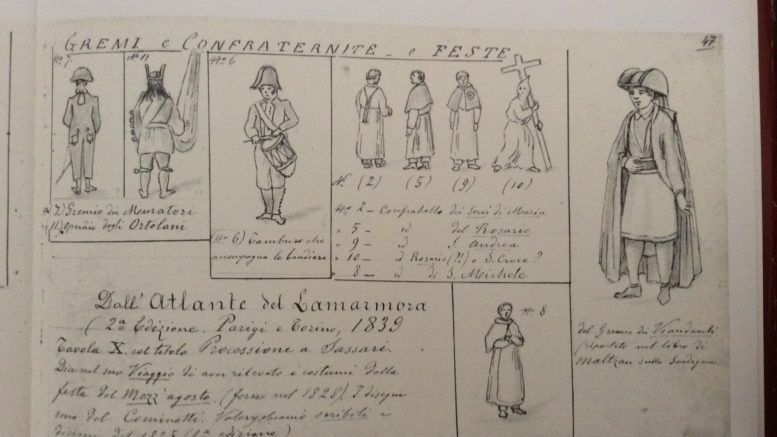 47
GREMI e CONFRATERNITE - e FESTE
No 7
No 11
No 6
No (2) (5) (9) (10)
7) Gremio dei Muratori
(11) degli Ortolani
(No 6) Tamburo che
accompagna le bandiere
No 2 - Confratello dei Servi di Maria
" 5 - id del Rosario
" 9 - id S. Andrea
" 10 - id Rosario (?!) o S. Croce?
" 8 - id di S. Michele
No 8
del Gremio dei Viandanti
(riportato nel libro di
Maltzan sulla Sardegna
Dall'Atlante del Lamarmora
(2a Edizione. Parigi e Torino, 1839
Tavola X. col titolo Processione a Sassari.
Dice nel suo Viaggio di aver rilevato i costumi dalla
festa del Mezz'agosto (forse nel 1828). I disegni
sono del Cominotti.
del 1825 (1a edizione)